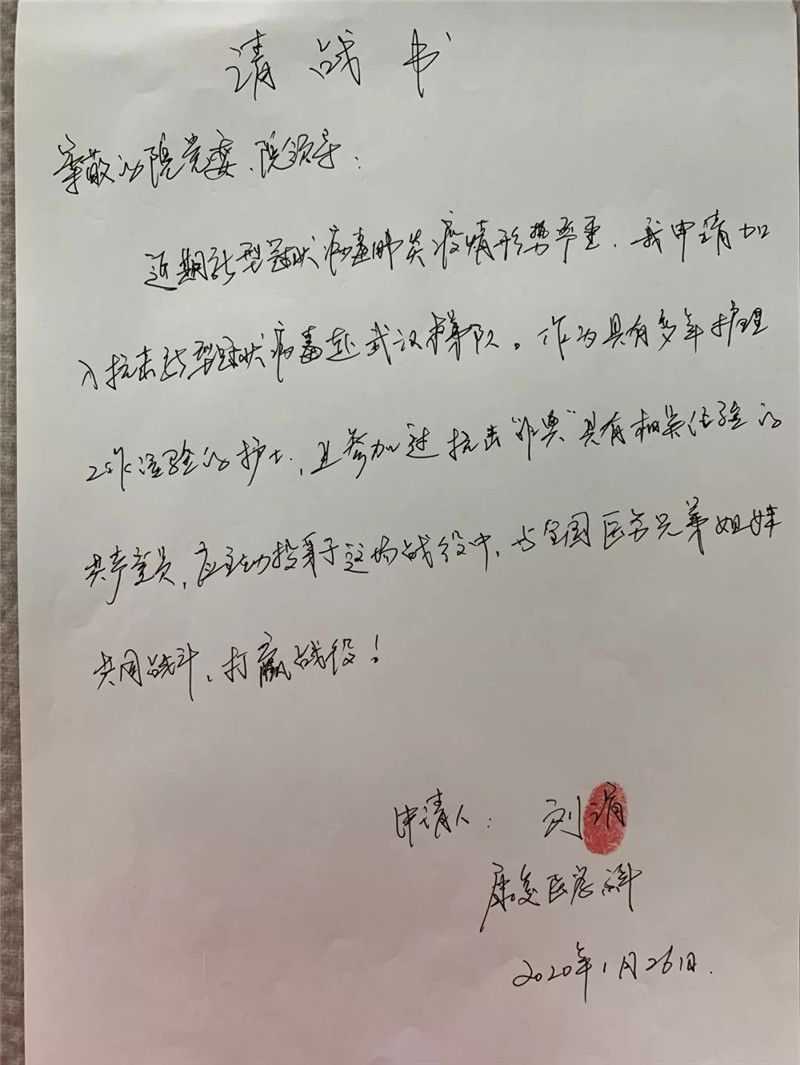 请战书
尊敬的院党委、院领导：
近期新型冠状病毒肺炎疫情形势严重，我申请加
入抗击新型冠状病毒赴武汉梯队。作为具有多年护理
工作经验的护士，且参加过抗击“非典”具有相关经验的
共产党员，应主动投身于这场战役中，与全国医务兄弟姐妹
共同战斗，打赢战役！
申请人：刘涓
康复医学科
2020年1月26日.